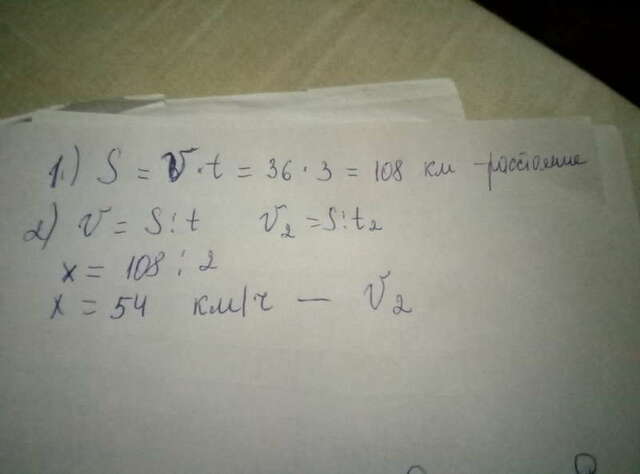 1.) S = V · t = 36 · 3 = 108 км - расстояние
2) V = S : t V₂ = S : t₂
x = 108 : 2
x = 54 км/ч — V₂